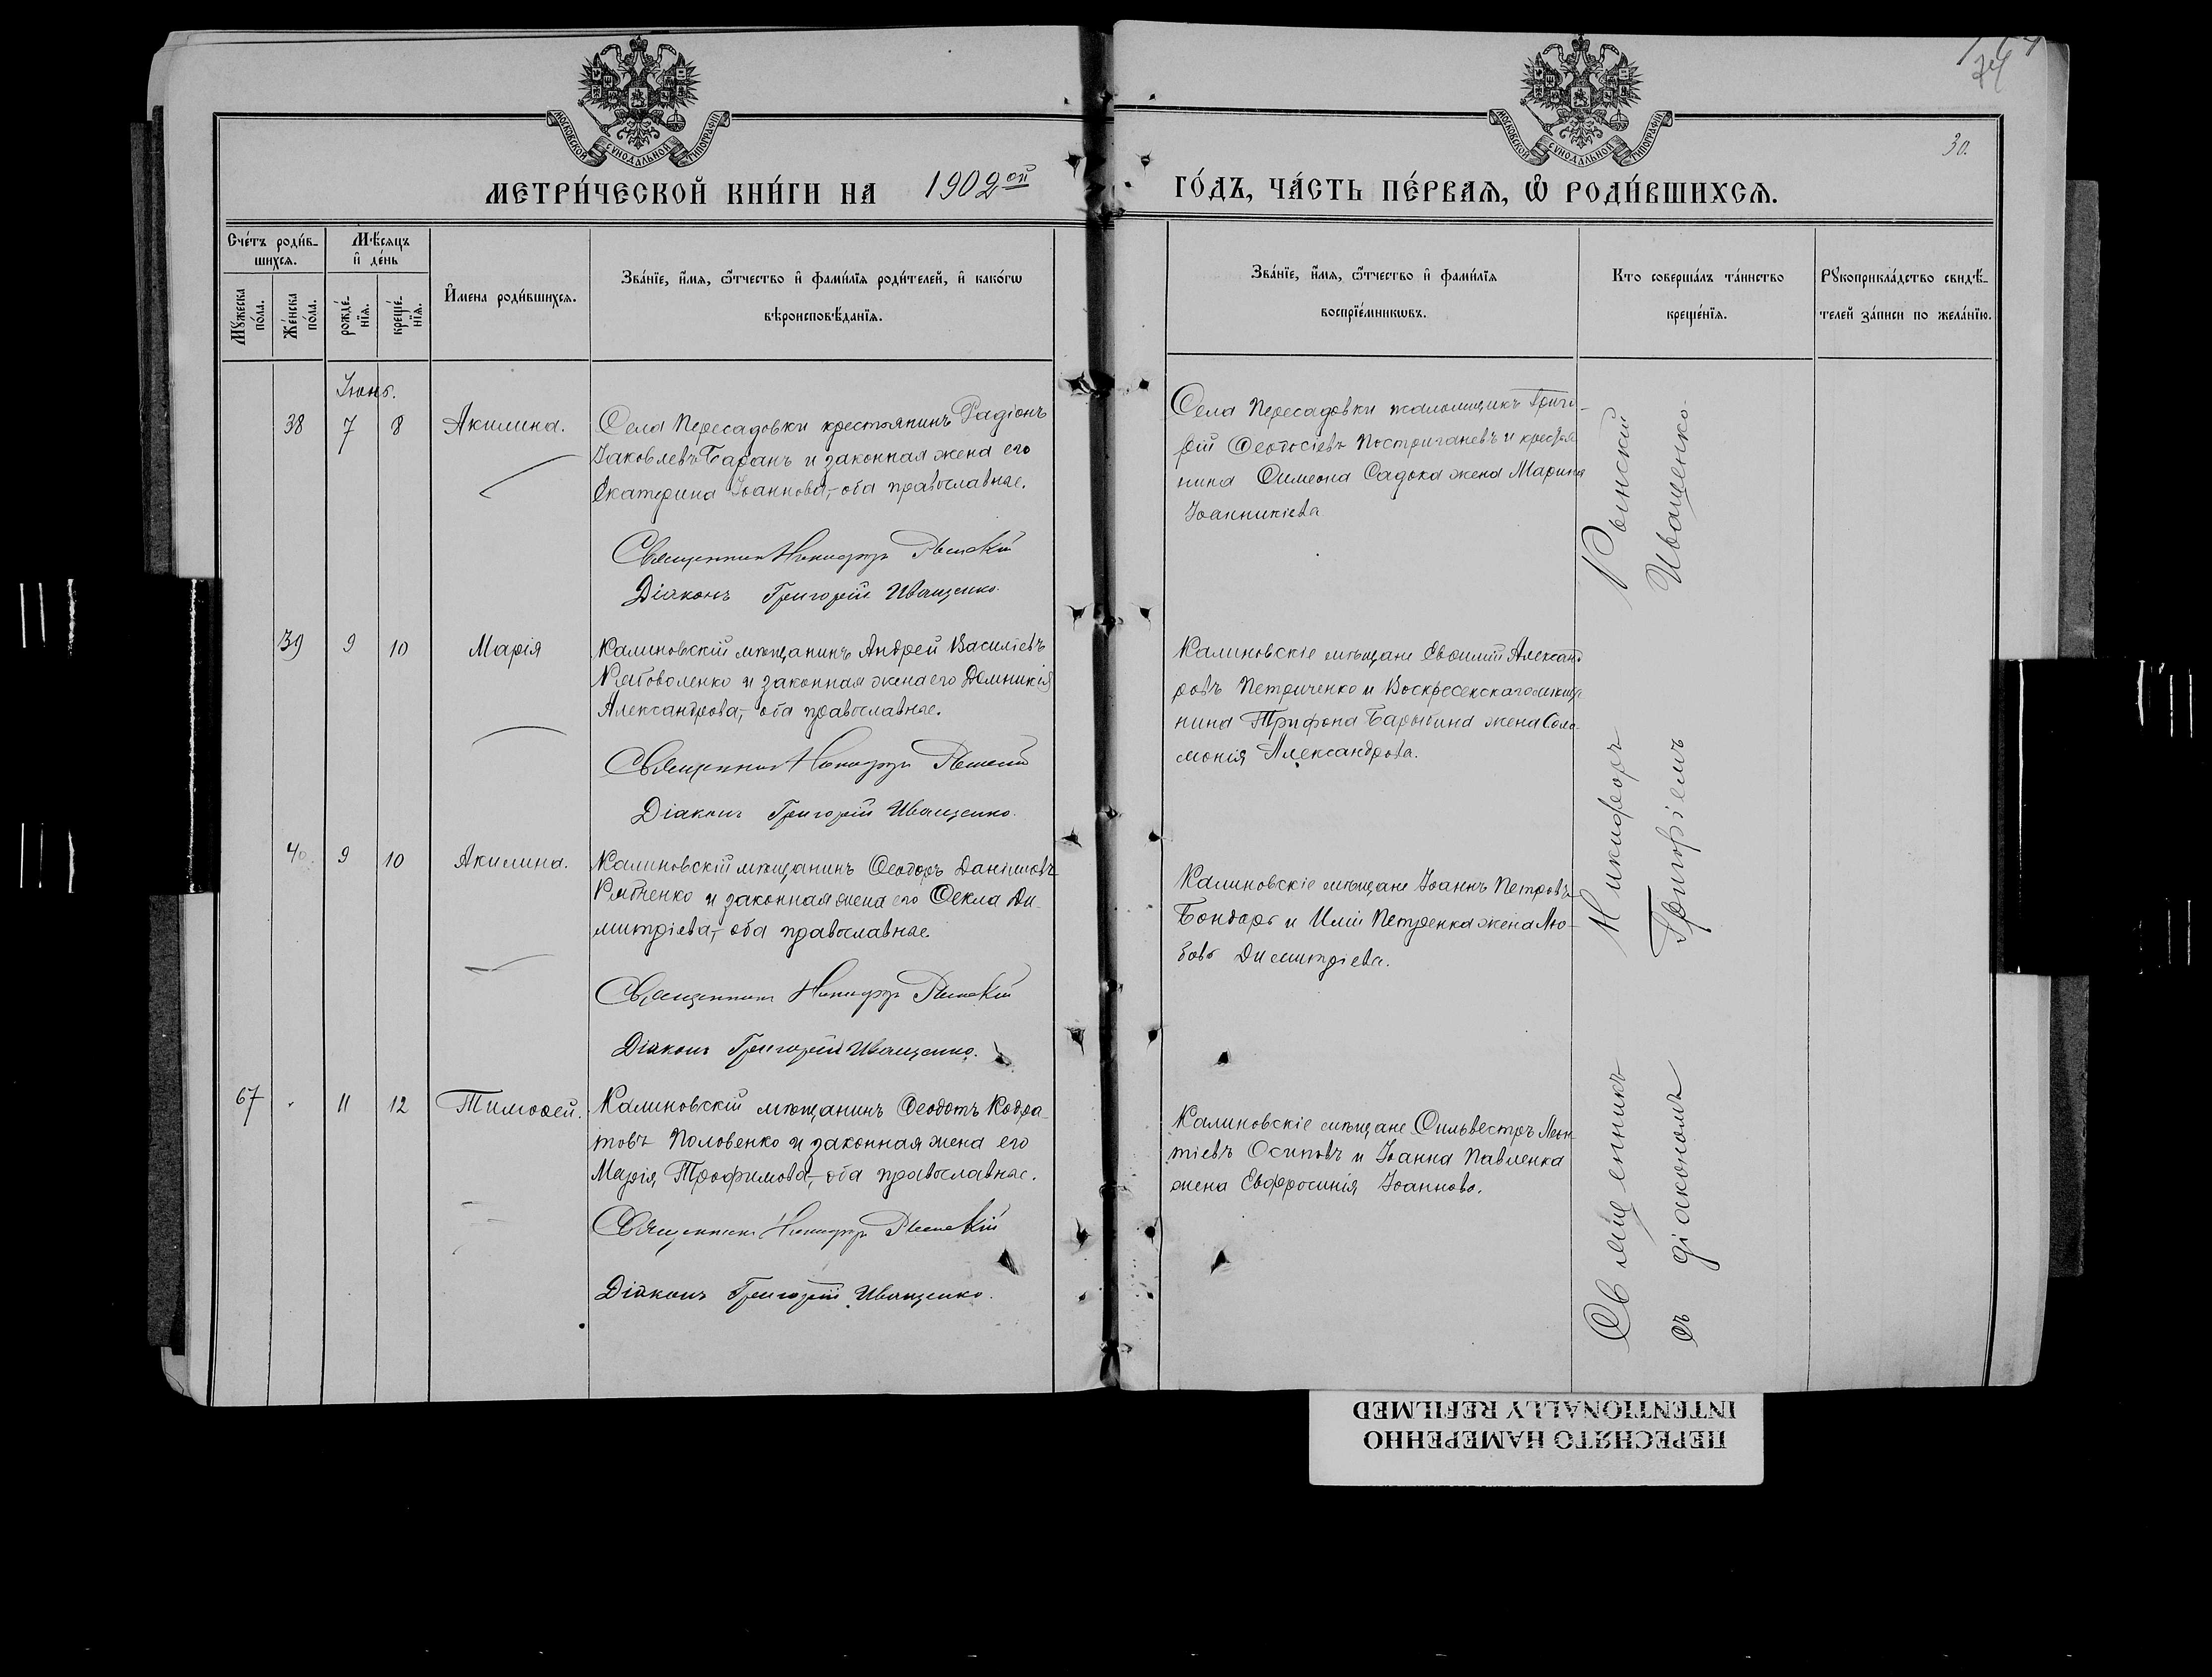 74
30.
МОСКОВСКОЙ СѴНОДАЛЬНОЙ ТИПОГРАФІИ
МОСКОВСКОЙ СѴНОДАЛЬНОЙ ТИПОГРАФІИ
МЕТРИ́ЧЕСКОЙ КНИ́ГИ НА 1902ой
ГО́ДЪ, ЧА́СТЬ ПЕ́РВАѦ, Ѡ҆ РОДИ́ВШИХСѦ.
Сче́тъ роди́в-
шихсѧ.
Мѣсѧцъ
и҆ де́нь
Мꙋ́жеска
по́ла.
Же́нска
по́ла.
рожде́-
нїѧ.
креще́-
нїѧ.
И҆мена роди́вшихсѧ.
Зва́нїе, и҆́мѧ, ѻ҆́тчество и҆ фами́лїѧ роди́телей, и҆ како́гѡ
вѣроисповѣ́данїѧ.
Зва́нїе, и҆́мѧ, ѻ҆́тчество и҆ фами́лїѧ
воспрїе́мникѡвъ.
Кто соверша́лъ та́инство
креще́нїѧ.
Рꙋкоприкла́дство свидѣ́-
телей за́писи по жела́нїю.
Іюнь.
38 7 8 Акилина.
Села Пересадовки крестьянинъ Радіонъ
Іаковлевъ Баранъ и законная жена его
Екатерина Іоаннова,- оба православные.
Священникъ Никифоръ Рыпскій
Діаконъ Григорій Иващенко.
Села Пересадовки Григо-
рій Ѳеодосіевъ и крестья
нина Симеона Садока жена Марина
Іоанникіева
39 9 10 Марія
Калиновскій мѣщанинъ Андрей Василіевъ
и законная жена его Домникія
Александрова,- оба православные.
Священникъ Никифоръ
Діаконъ Григорій Иващенко.
Калиновскіе мѣщане Евѳимій Александ
ровъ Петриченко и Воскресенскаго мѣща
нина Трифона жена Соло-
монія Александрова.
40. 9 10 Акилина.
Калиновскій мѣщанинъ Ѳеодоръ Даніиловъ
Рябченко и законная жена его Ѳекла Ди-
митріева,- оба православные.
Священникъ Никифоръ
Діаконъ Григорій Иващенко.
Калиновскіе мѣщане Іоаннъ Петровъ
Бондарь и Иліи Петренка жена Лю-
бовь Димитріева.
67 11 12 Тимоѳей.
Калиновскій мѣщанинъ Ѳеодотъ Кодра-
товъ Половенко и законная жена его
Марія Трофимова,- оба православные.
Священникъ Никифоръ
Діаконъ Григорій Иващенко.
Калиновскіе мѣщане Сильвестръ Леон
тіевъ Осиповъ и Іоанна Павленка
жена Евфросинія Іоаннова.
Священникъ Никифоръ
съ діакономъ Григоріемъ Иващенко.
ПЕРЕСНЯТО НАМЕРЕННО
INTENTIONALLY REFILMED